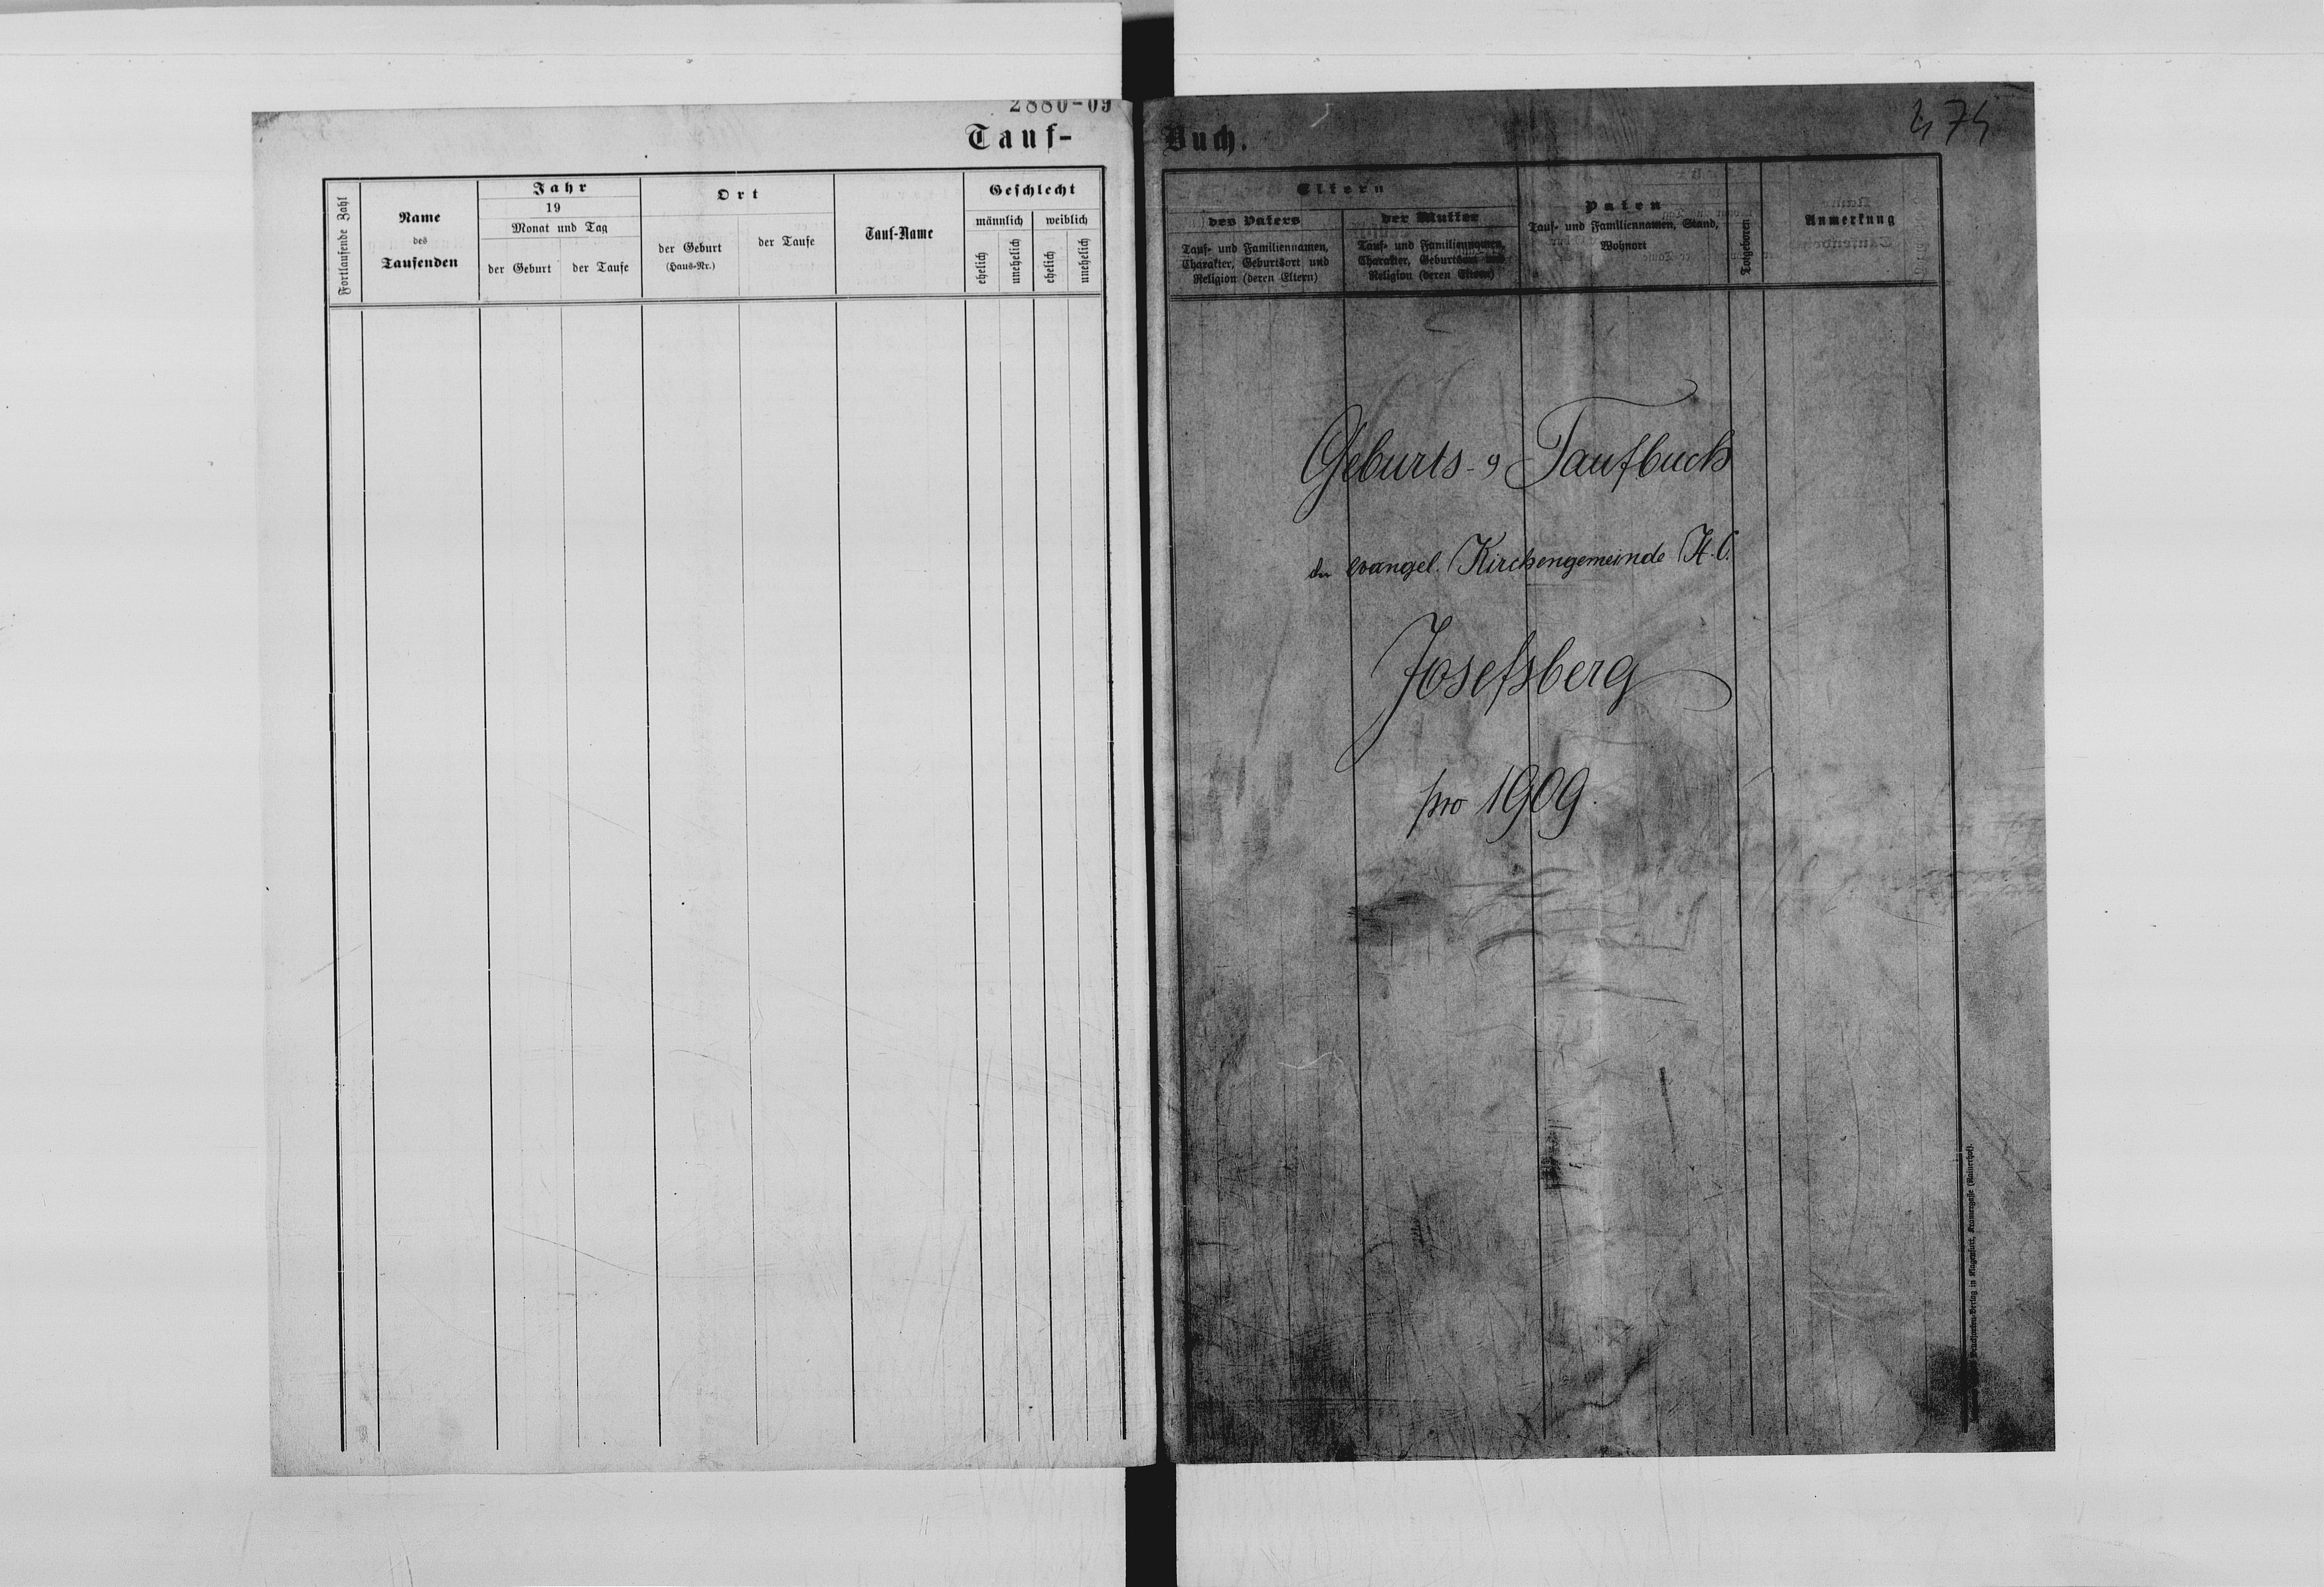 2880-09
Tauf-
Fortlaufende Zahl
Name
des
Taufenden
Jahr
19
Monat und Tag
der Geburt
der Taufe
Ort
der Geburt
(Haus-Nr.)
der Taufe
Tauf-Name
Geschlecht
männlich
weiblich
ehelich
unehelich
ehelich
unehelich
Buch.
474
Eltern
des Vaters
Tauf- und Familiennamen,
Charakter, Geburtsort und
Religion (deren Eltern)
der Mutter
Tauf- und Familiennamen,
Charakter, Geburtsort und
Religion (deren Eltern)
Paten
Tauf- und Familiennamen, Stand,
Wohnort
Totgeboren
Anmerkung
Geburts- & Taufbuch
der evangel. Kirchengemeinde H.C.
Josefsberg
pro 1909.
Verlag in Klagenfurt, Kramergasse